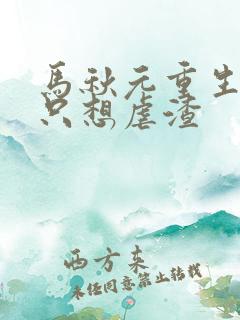 馬秋元重生
只想虐渣
西方束
未经同意禁止转载